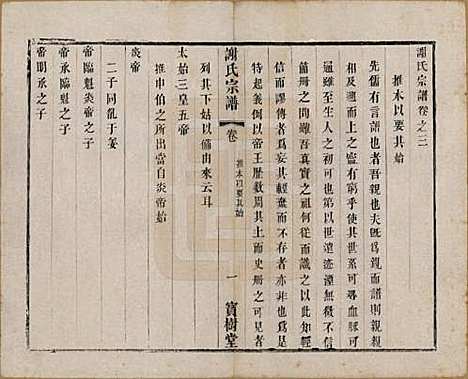 謝氏宗譜卷之二
推本以要其始
先儒有言譜也者吾親也夫旣爲親而譜則親親
相及凡在上之靈有可攀以求其世系可尋血脈可
通雖至生人之初可也第以世遠迹湮無徵不信史
册之間雖吾眞實之祖何從而識之以此知經
信而謬傳者爲妄其輕棄而不存者亦非也爲是
特起義例以帝王歷數周其土而史册之可見者
列其下姑以備由來云耳
謝氏宗譜
卷
推本以要其始
一
寶樹堂
太始三皇五帝
推申伯之所出當自炎帝始
炎帝
二子同亂于姜
帝臨魁炎帝之子
帝承臨魁之子
帝明承之子